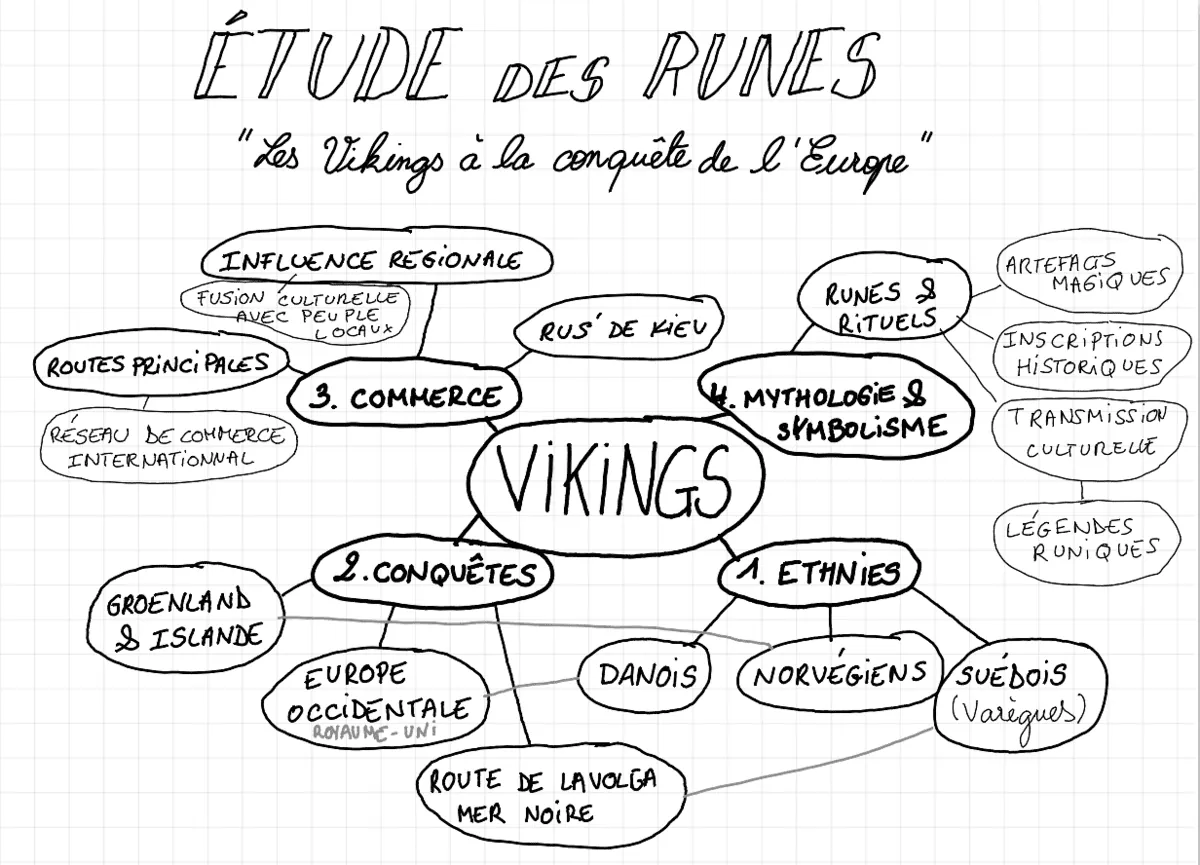 ÉTUDE DES RUNES
"Les Vikings à la conquête de l'Europe"
INFLUENCE REGIONALE
FUSION CULTURELLE
AVEC PEUPLE
LOCAUX
ROUTES PRINCIPALES
RÉSEAU DE COMMERCE
INTERNATIONNAL
3. COMMERCE
RUS' DE KIEV
RUNES &
RITUELS
ARTEFACTS
MAGIQUES
INSCRIPTIONS
HISTORIQUES
TRANSMISSION
CULTURELLE
LÉGENDES
RUNIQUES
4. MYTHOLOGIE &
SYMBOLISME
VIKINGS
2. CONQUÊTES
1. ETHNIES
GROENLAND
& ISLANDE
EUROPE
OCCIDENTALE
ROYAUME-UNI
DANOIS
NORVÉGIENS
SUÉDOIS
(Varègues)
ROUTE DE LA VOLGA
MER NOIRE